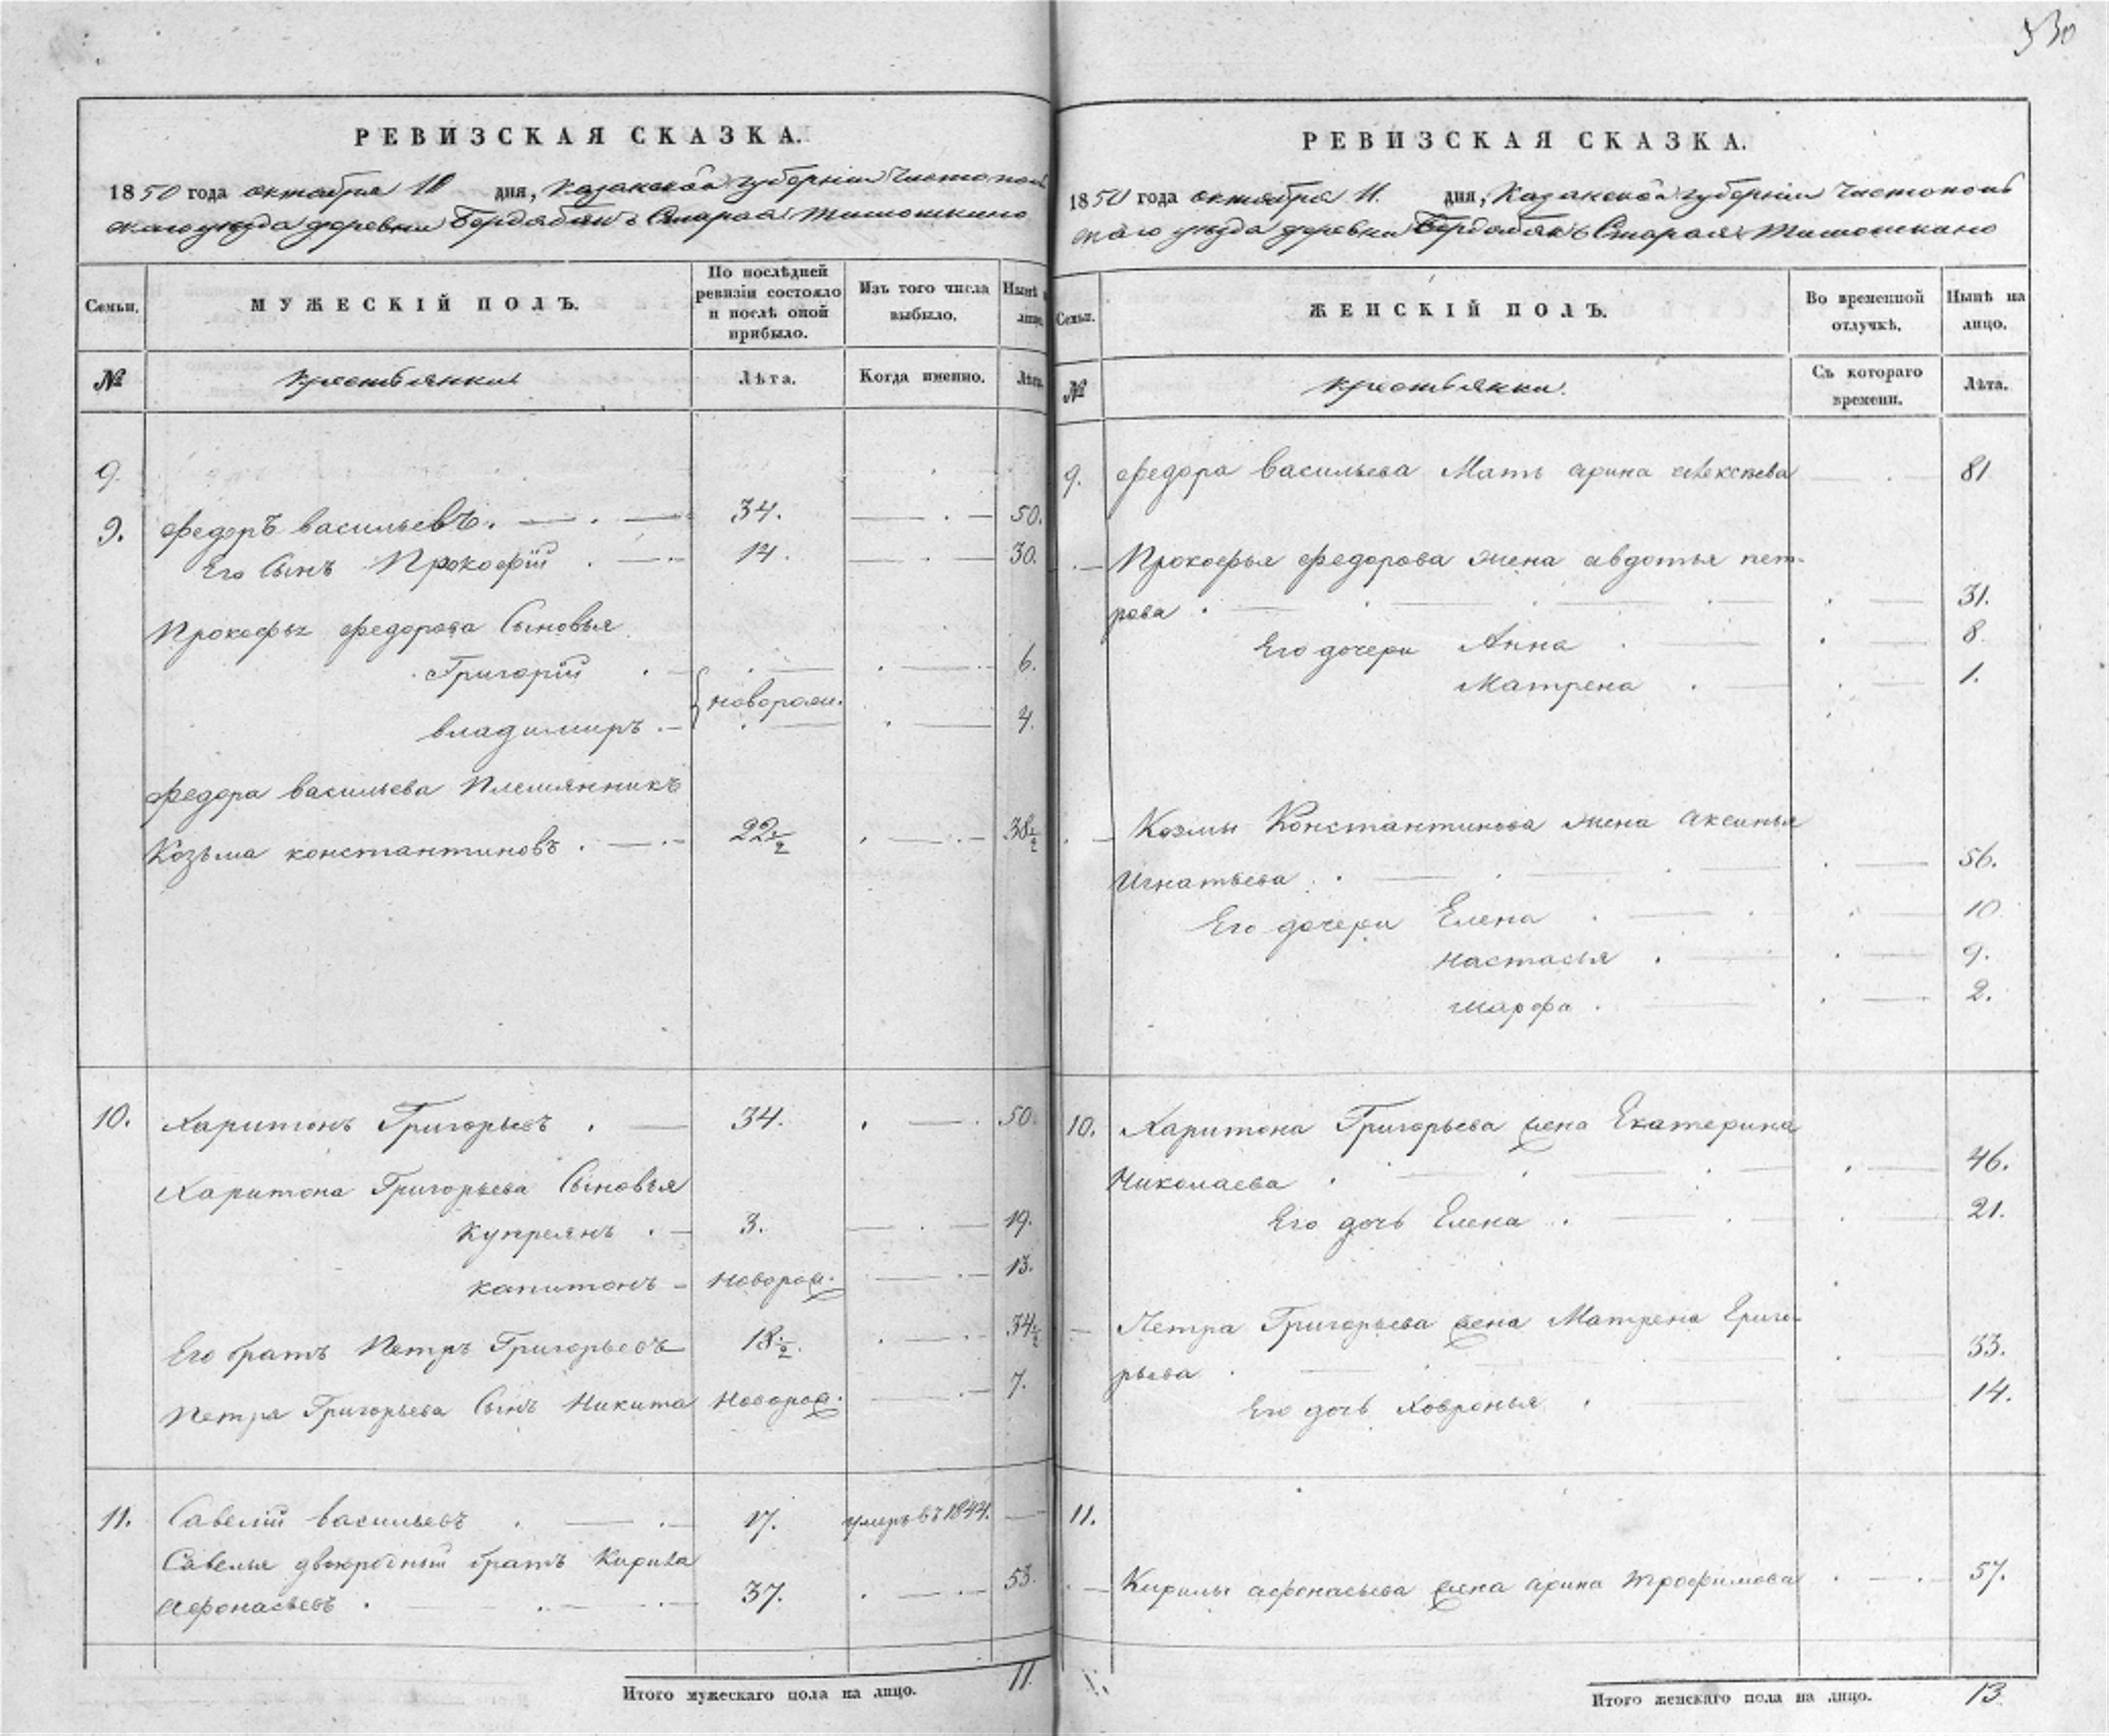 530
РЕВИЗСКАЯ СКАЗКА.
1850 года октября 10 дня, Казанской губернiи Чистополь
скаго уезда деревни Бердебякъ Старая Тимошкино
Семьи.
МУЖЕСКIЙ ПОЛЪ.
По послѣдней ревизiи состояло и послѣ оной прибыло.
Изъ того числа выбыло.
Нынѣ на лицо.
№
Лѣта.
Когда именно.
Лѣта.
9.
9. Федоръ васильевъ. 34. 50.
Его Сынъ Прокофiй 14. 30.
Прокофья федорова Сыновья
Григорiй 6.
новорож.
владимиръ 4.
Федора васильева Племянникъ
Козьма константиновъ 22½ 38½
10. Харитонъ Григорьевъ 34. 50.
Харитона Григорьева Сыновья
Купреянъ 3. 19.
капитонъ Новорож. 13.
Его братъ Петръ Григорьевъ 18½ 34½
Петра Григорьева Сынъ Никита Новорож. 7.
11. Савелiй васильевъ 17. умеръ въ 1844.
Савелья двоюродный братъ Кирила
Афонасьевъ 37. 53.
Итого мужескаго пола на лицо. 11
РЕВИЗСКАЯ СКАЗКА.
1850 года октября 11. дня, Казанской губернiи Чистополь
скаго уезда деревни Бердебякъ Старая Тимошкино
Семьи.
ЖЕНСКIЙ ПОЛЪ.
Во временной отлучкѣ.
Нынѣ на лицо.
№
крестьянки.
Съ котораго времени.
Лѣта.
9. Федора васильева Мать арина алексѣева 81
Прокофья федорова жена авдотья пет-
рова 31.
Его дочери Анна 8
Матрена 1.
Козмы Константинова жена аксинья
Игнатьева 56.
Его дочери Елена 10
настасья 9.
марфа 2.
10. Харитона Григорьева жена Екатерина
Николаева 46.
Его дочь Елена 21.
Петра Григорьева жена Матрена Григо-
рьева 33.
Его дочь Ховронья 14.
11.
Кирилы афонасьева жена арина трофимова 57.
Итого женскаго пола на лицо. 13